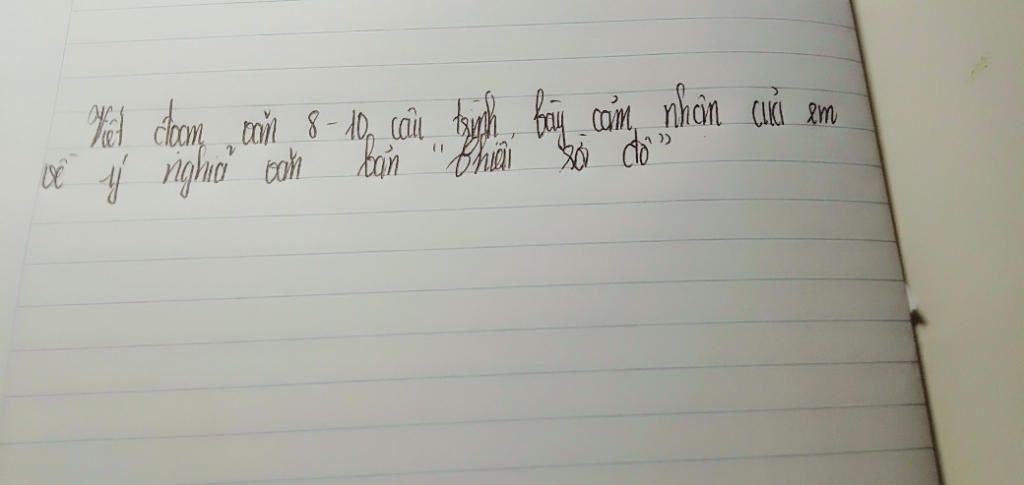 Viết đoạn văn 8-10 câu trình bày cảm nhận của em
về ý nghĩa văn bản "Chiếu dời đô"